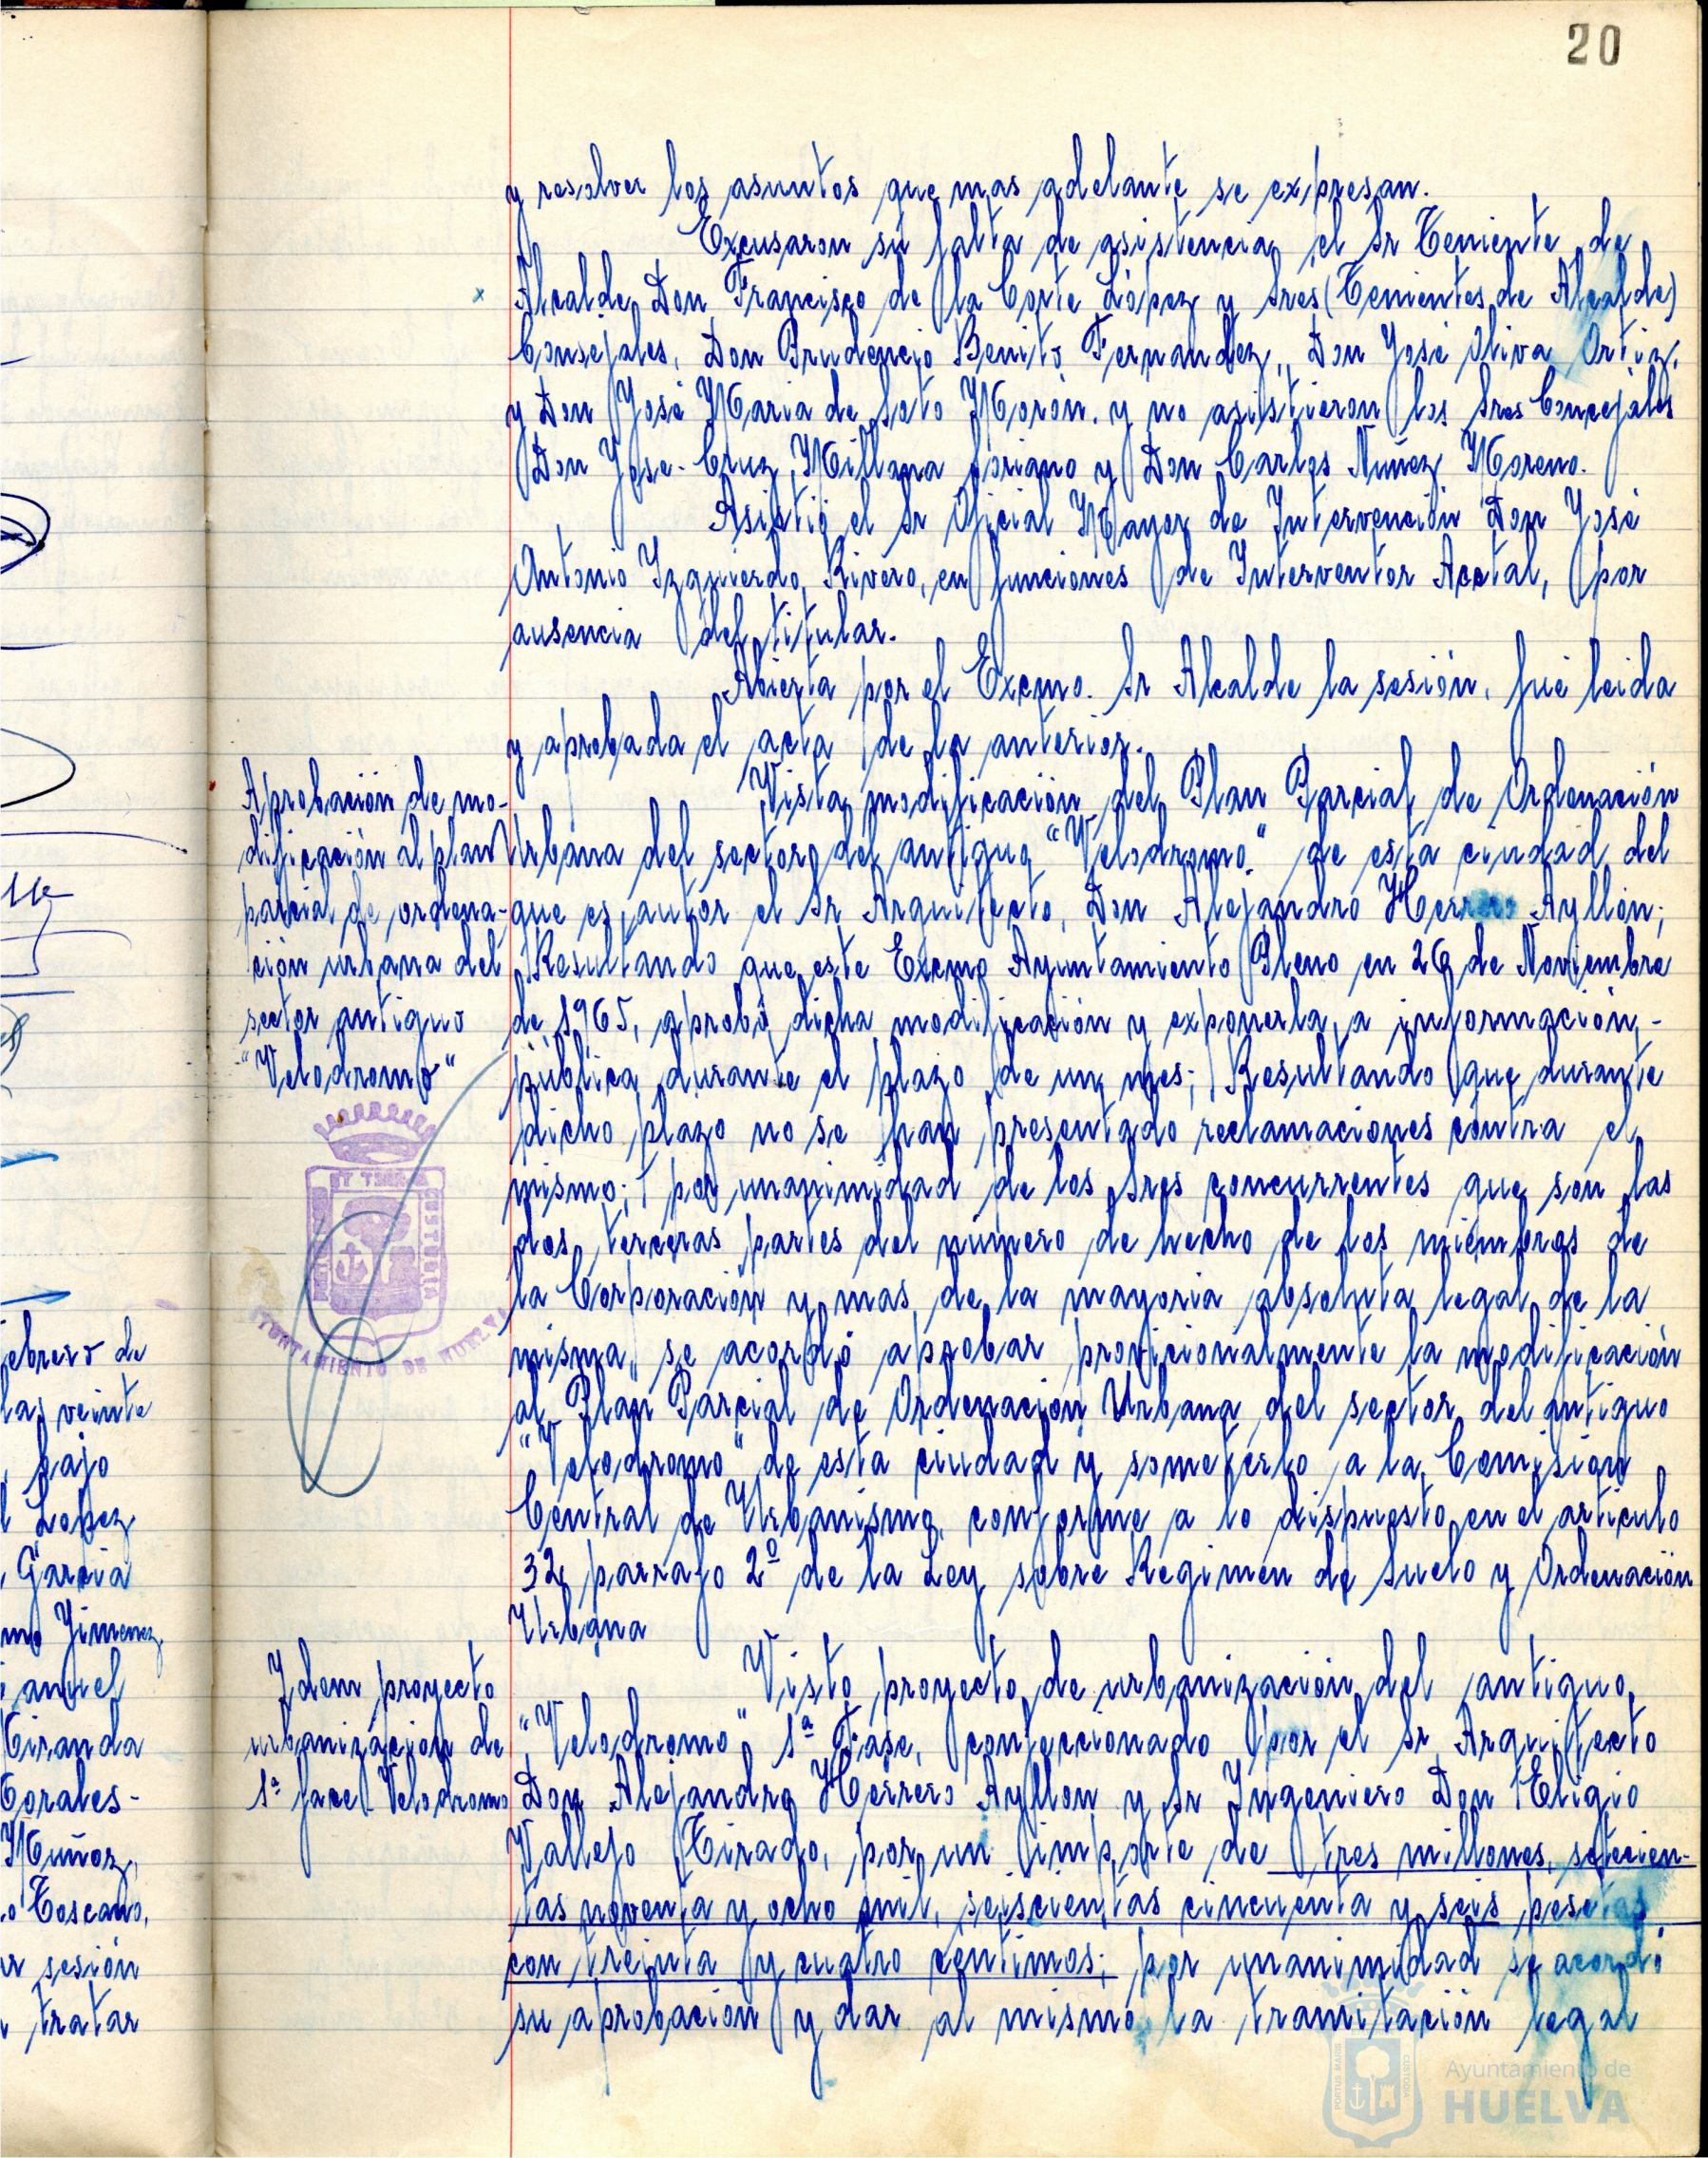 20
y resolver los asuntos que mas adelante se expresan.
Excusaron su falta de asistencia, el Sr Teniente de
Alcalde Don Francisco de la Corte López y Sres (Tenientes de Alcalde)
Consejales, Don Prudencio Benito Fernandez, Don José Oliva Ortiz,
y Don José Maria de Soto Morón. y no asistieron los Sres Concejales
Don Jose-Cruz Millana Soriano y Don Carlos Nuñez Moreno.
Asistió el Sr Oficial Mayor de Intervención Don José
Antonio Izquierdo Rivero, en funciones de Interventor Acctal, por
ausencia del titular.
Abierta por el Excmo. Sr Alcalde la sesión, fué leida
y aprobada el acta de la anterior.
Aprobación de mo-
dificación al plan
parcial de ordena-
ción urbana del
sector antiguo
"Velodromo"
Vista modificación del Plan Parcial de Ordenación
Urbana del sector del antiguo "Velodromo" de esta ciudad del
que es autor el Sr Arquitecto, Don Alejandro Herrero Ayllón;
Resultando que este Excmo Ayuntamiento Pleno en 26 de Noviembre
de 1965, aprobó dicha modificación y exponerla a información-
pública durante el plazo de un mes; Resultando que durante
dicho plazo no se han presentado reclamaciones contra el
mismo; por unanimidad de los Sres concurrentes que son las
dos terceras partes del número de hecho de los miembros de
la Corporación y mas de la mayoria absoluta legal de la
misma, se acordó aprobar provicionalmente la modificación
al Plan Parcial de Ordenación Urbana del sector del antiguo
"Velodromo" de esta ciudad y someterlo a la Comisión
Central de Urbanismo, conforme a lo dispuesto en el articulo
32, parrafo 2º de la Ley sobre Regimen de Suelo y Ordenación
Urbana
AYUNTAMIENTO DE HUELVA
Idem proyecto
urbanización de
1ª face Velodromo
Visto proyecto de urbanización del antiguo
"Velodromo" 1ª Fase, confeccionado por el Sr Arquitecto
Don Alejandro Herrero Ayllón y Sr Ingeniero Don Eligio
Vallejo Tirado, por un importe de tres millones, setecien-
tas noventa y ocho mil, seiscientas cincuenta y seis pesetas
con treinta y cuatro centimos; por unanimidad se acordó
su aprobación y dar al mismo la tramitación legal
ebrero de
las veinte
bajo
Lopez
Garcia
Jimenez,
anuel
Miranda
Corales-
Muñoz,
Toscano,
sesión
tratar
Ayuntamiento de
HUELVA